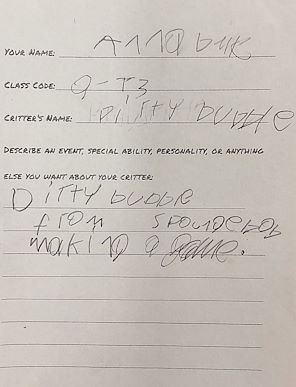 YOUR NAME: Anna buk
CLASS CODE: Q-T3
CRITTER'S NAME: Dirty bubble
DESCRIBE AN EVENT, SPECIAL ABILITY, PERSONALITY, OR ANYTHING
ELSE YOU WANT ABOUT YOUR CRITTER:
Dirty bubble
from spongebob
making a game.